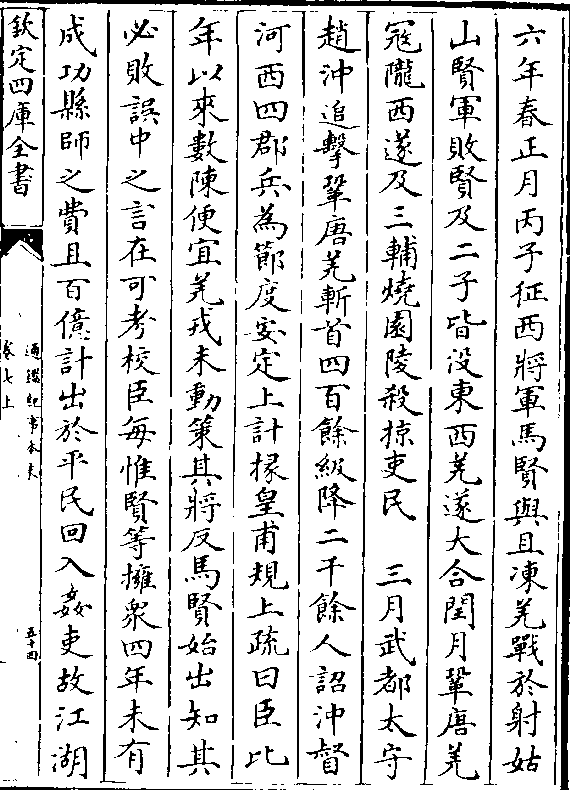 六年春正月丙子征西將軍馬賢與且凍羌戰於射姑
山賢軍敗賢及二子皆沒東西羌遂大合閏月鞏唐羌
冦隴西遂及三輔燒園陵殺掠吏民　三月武都太守
趙沖追擊鞏唐羌斬首四百餘級降二千餘人詔沖督
河西四郡兵為節度安定上計掾皇甫規上疏曰臣比
年以來數陳便宜羌戎未動策其將反馬賢始出知其
必敗誤中之言在可考校臣每惟賢等擁衆四年未有
成功縣師之費且百億計出於平民回入姦吏故江湖
欽定四庫全書
通鑑紀事本末
卷七上
五十四